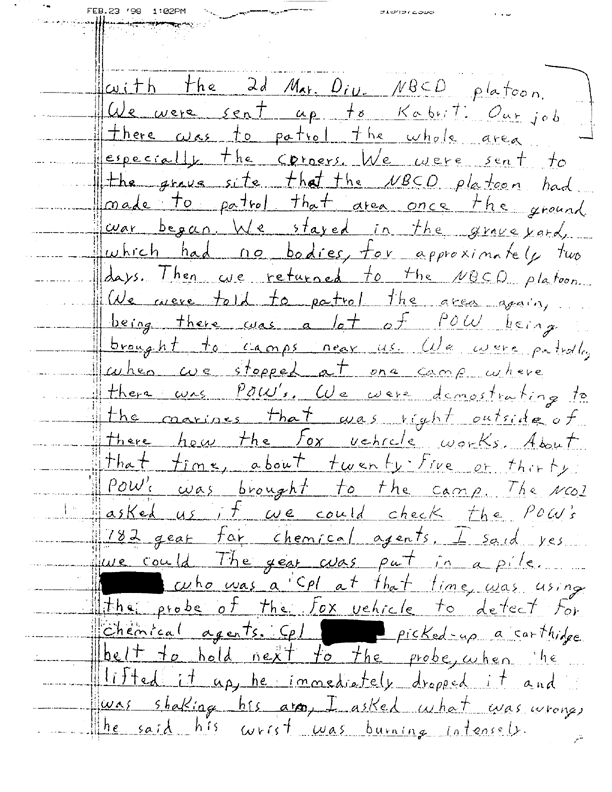 FEB.23 '98 1:02PM
with the 2d Mar. Div. NBCD platoon.
We were sent up to Kabrit. Our job
there was to patrol the whole area
especially the corners. We were sent to
the grave site that the NBCD platoon had
made to patrol that area once the ground
war began. We stayed in the graveyard,
which had no bodies, for approximately two
days. Then we returned to the NBCD platoon.
We were told to patrol the area again,
being there was a lot of POW being
brought to camps near us. We were patrolling
when we stopped at one camp where
there was POW's. We were demostrating to
the marines that was right outside of
there how the Fox vehicle works. About
that time, about twenty-five or thirty
POW's was brought to the camp. The NCOI
asked us if we could check the POW's
782 gear for chemical agents. I said yes
we could. The gear was put in a pile.
who was a Cpl at that time, was using
the probe of the Fox vehicle to detect for
chemical agents. Cpl picked-up a carthidge
belt to hold next to the probe, when he
lifted it up, he immediately dropped it and
was shaking his arm, I asked what was wrong,
he said his wrist was burning intensely.